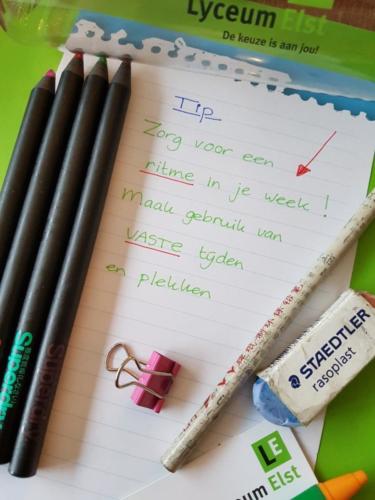 Lyceum Elst
De keuze is aan jou!
Tip
Zorg voor een
ritme in je week!
Maak gebruik van
VASTE tijden
en plekken
STAEDTLER
rasoplast
Superdry
LE
Lyceum Elst